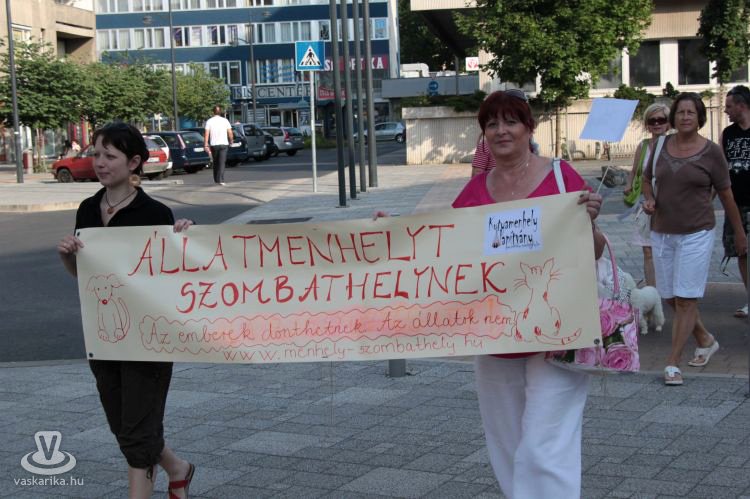 CENTER
ÁLLATMENHELYT
Kutyamenhely
Alapítvány
SZOMBATHELYNEK
Az emberek dönthetnek. Az állatok nem
www.menhely-szombathely.hu
vaskarika.hu